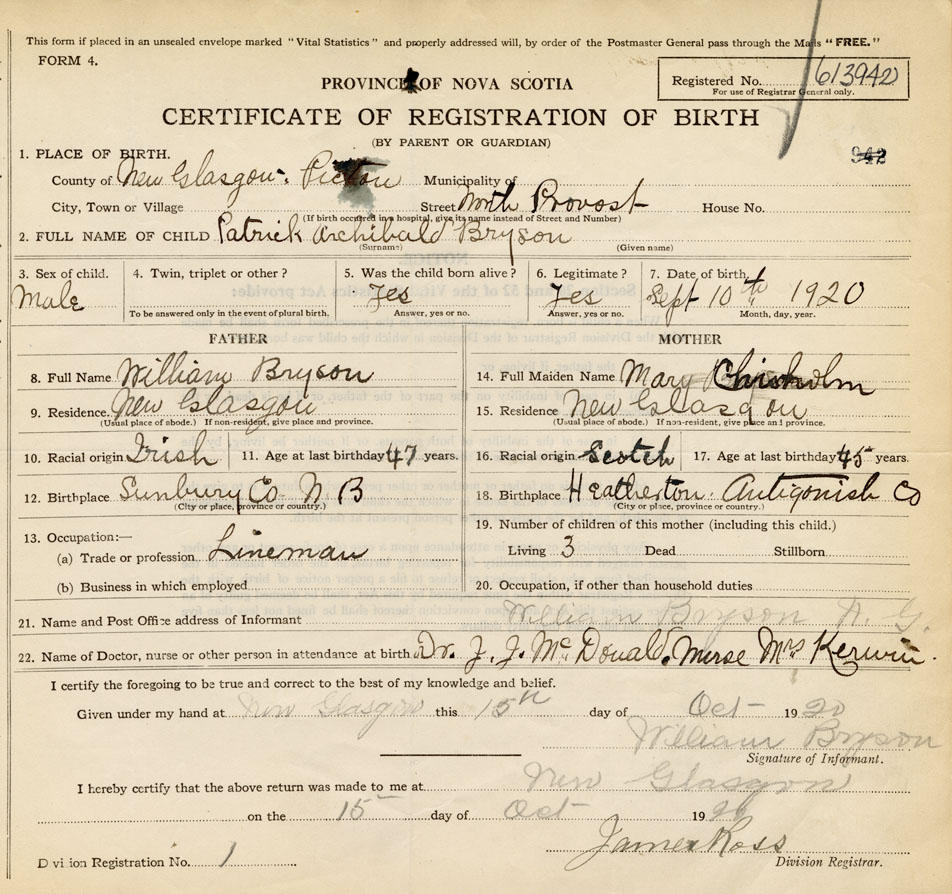 This form if placed in an unsealed envelope marked "Vital Statistics" and properly addressed will, by order of the Postmaster General pass through the Mails "FREE."
FORM 4.
PROVINCE OF NOVA SCOTIA
Registered No. 613942
For use of Registrar General only.
CERTIFICATE OF REGISTRATION OF BIRTH
(BY PARENT OR GUARDIAN)
942
1. PLACE OF BIRTH.
County of New Glasgow. Pictou Municipality of
City, Town or Village Street North Provost House No.
(If birth occurred in a hospital, give its name instead of Street and Number)
2. FULL NAME OF CHILD Patrick Archibald Bryson
(Surname) (Given name)
3. Sex of child. 4. Twin, triplet or other? 5. Was the child born alive? 6. Legitimate? 7. Date of birth.
Male Yes Yes Sept 10th 1920
To be answered only in the event of plural birth. Answer, yes or no. Answer, yes or no. Month, day, year.
FATHER MOTHER
8. Full Name William Bryson 14. Full Maiden Name Mary Chisholm
9. Residence. New Glasgow 15. Residence New Glasgow
(Usual place of abode.) If non-resident, give place and province. (Usual place of abode.) If non-resident, give place and province.
10. Racial origin Irish 11. Age at last birthday 47 years. 16. Racial origin Scotch 17. Age at last birthday 45 years.
12. Birthplace Sunbury Co N B 18. Birthplace Heatherton. Antigonish Co
(City or place, province or country.) (City or place, province or country.)
13. Occupation:— 19. Number of children of this mother (including this child.)
(a) Trade or profession Lineman Living 3 Dead Stillborn
(b) Business in which employed 20. Occupation, if other than household duties
21. Name and Post Office address of Informant William Bryson N. G.
22. Name of Doctor, nurse or other person in attendance at birth. Dr. J. J. McDonald. Nurse Mrs Kerwin.
I certify the foregoing to be true and correct to the best of my knowledge and belief.
Given under my hand at New Glasgow this 15th day of Oct 1920
William Bryson
Signature of Informant.
I hereby certify that the above return was made to me at New Glasgow
on the 15 day of Oct 1920
James Ross
Division Registrar.
Division Registration No. 1